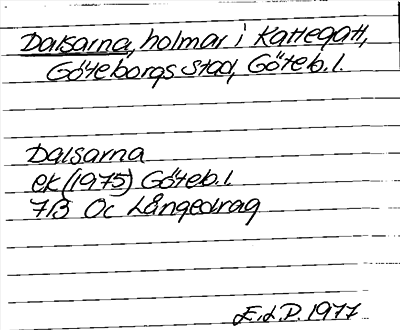 Dalsarna, holmar i Kattegatt,
Göteborgs stad, Göteb. l.
Dalsarna
ek (1975) Göteb. l.
7B Oc Långedrag
E.d.P. 1977